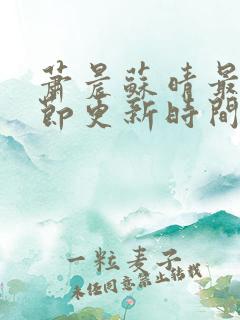 蕭晨蘇晴最
節更新時間
一粒麦子
未经同意禁止转载